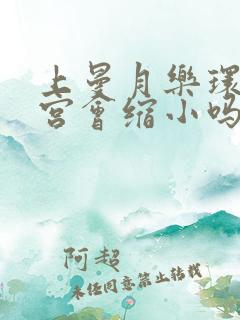 上曼月樂環
宫會缩小吗
阿超
未经同意禁止转载